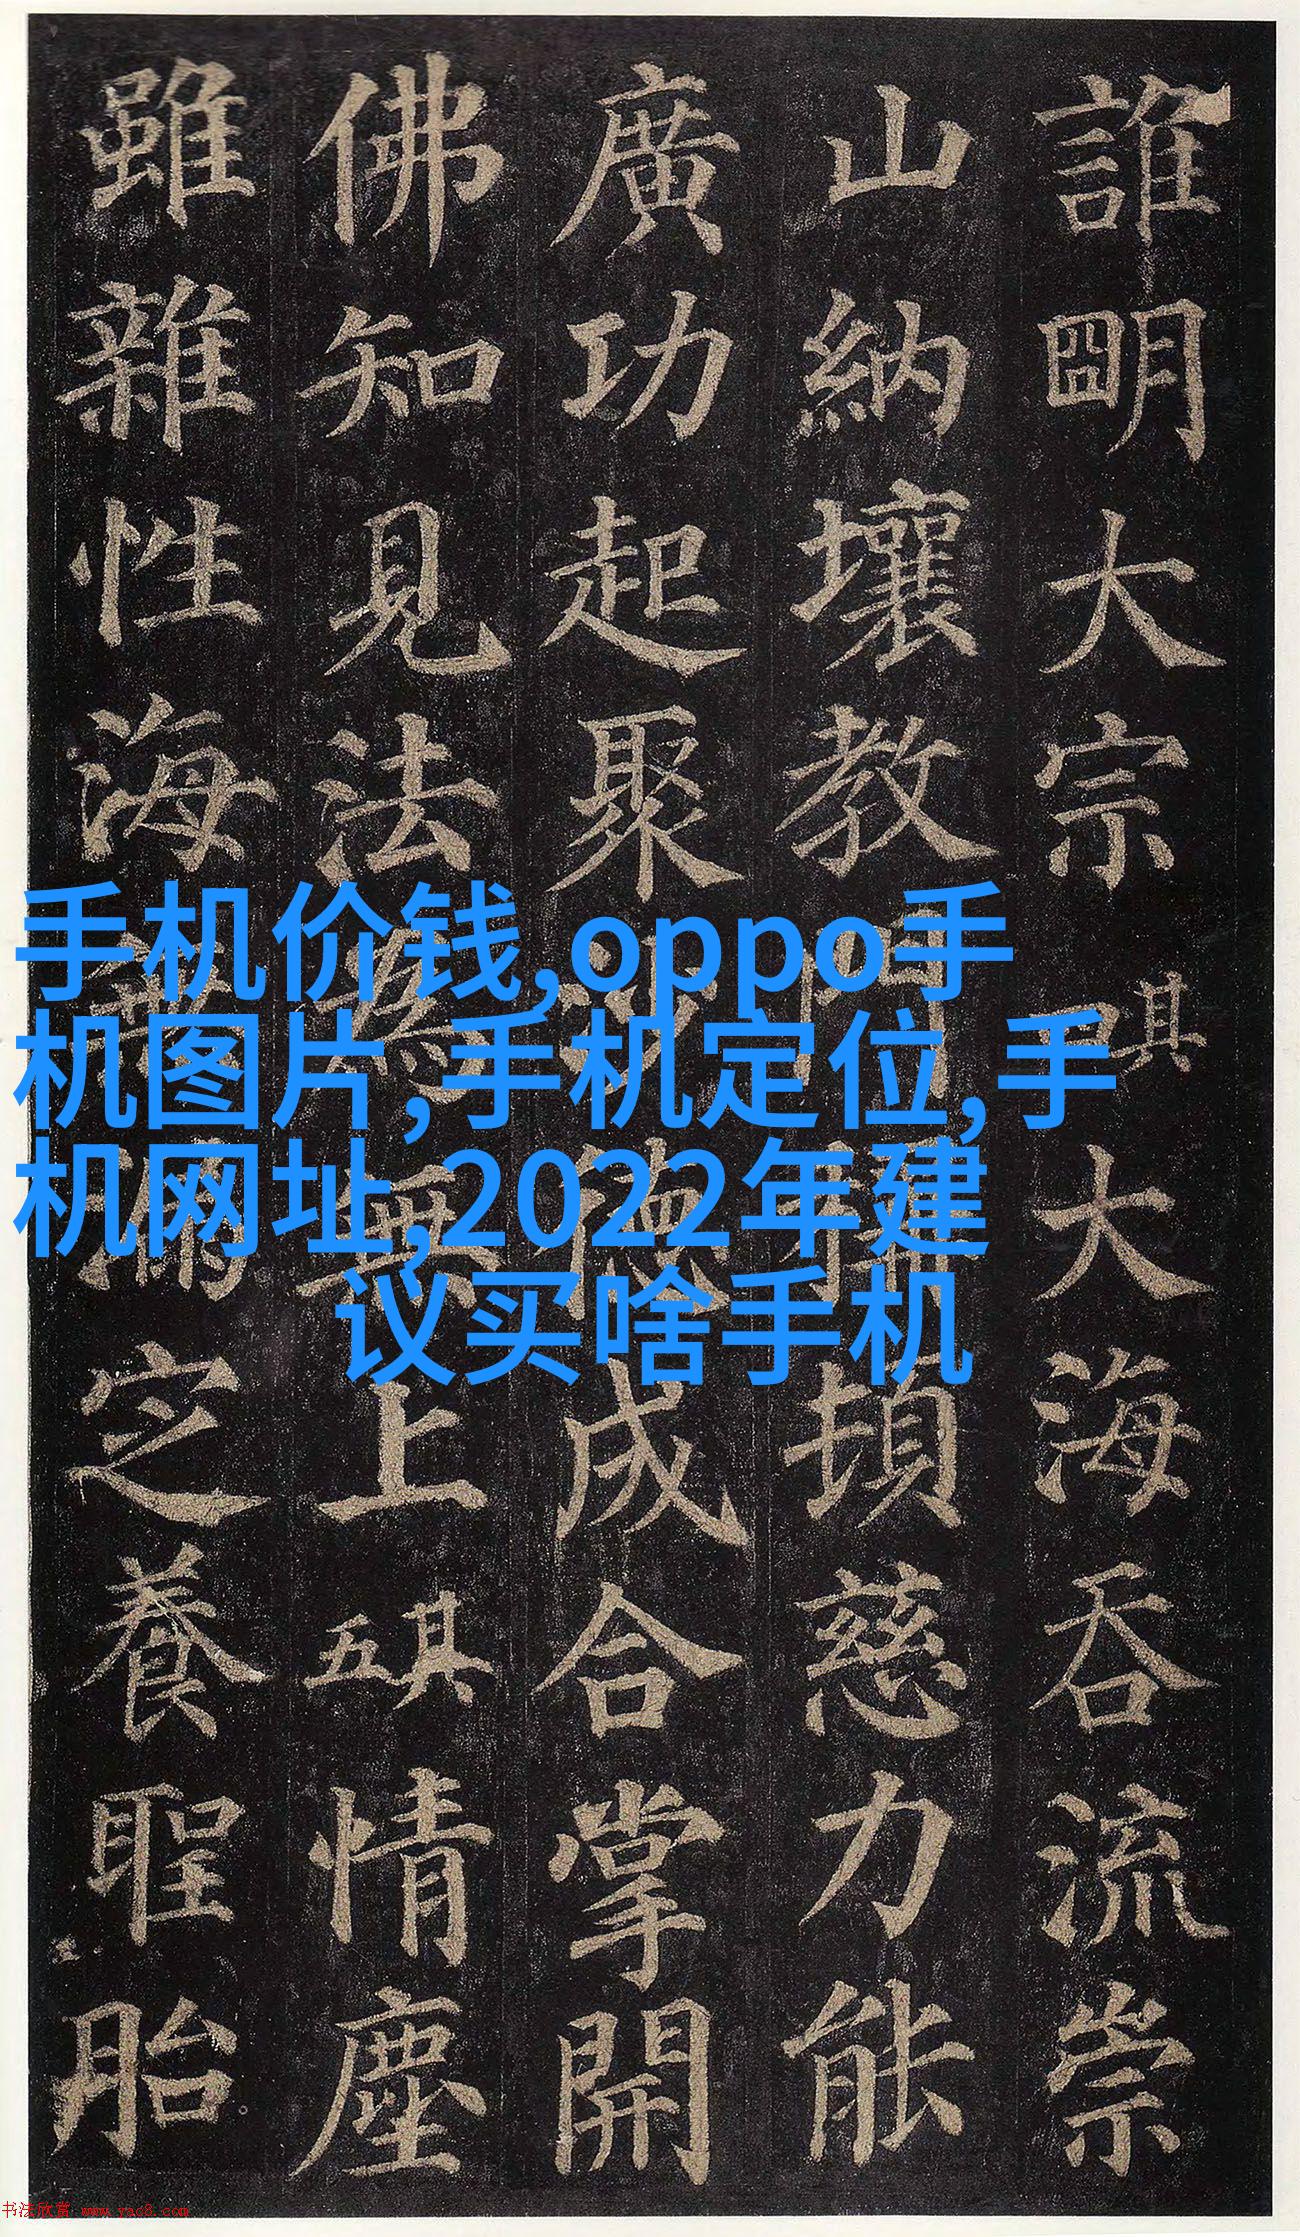 誰明大宗其大海吞流崇
山納壤教頓慈力能
廣功起聚成合掌開
佛知見法無上其五情塵
雖雜性海定養聖胎
手机价钱,oppo手
机图片,手机定位,手
机网址,2022年建
议买啥手机
书法欣赏 www.yac8.com